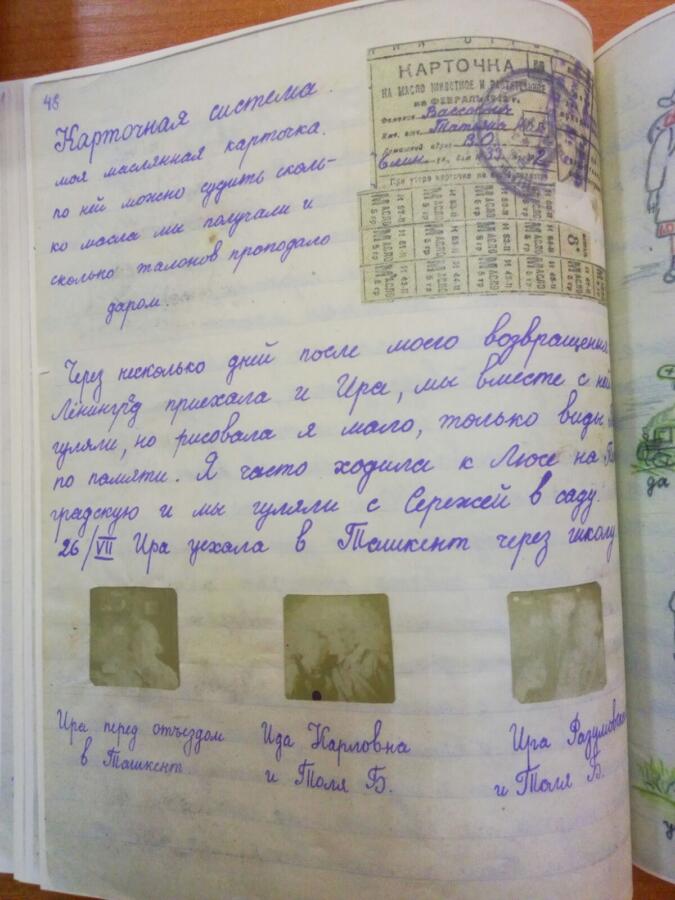 48
Карточная система.
моя маслянная карточка.
по ней можно судить сколь-
ко масла мы получали и
сколько талонов проподало
даром.
КАРТОЧКА
НА МАСЛО ЖИВОТНОЕ И РАСТИТЕЛЬНОЕ
на ФЕВРАЛЬ
Фамилия Вассоевич
Имя, отч. Татьяна
Домашний адрес В.О.
ул., дом № 33 кв. 2
При утере карточка не
МАСЛО 5 гр
Через несколько дней после моего возвращения
Ленинград приехала и Ира, мы вместе с ней
гуляли, но рисовала я мало, только виды
по памяти. Я часто ходила к Люсе на
градскую и мы гуляли с Сережей в саду.
26/VII Ира уехала в Ташкент через школу
Ира перед отъездом
в Ташкент
Ида Карловна
и Толя Б.
Ира
и Толя Б.
да